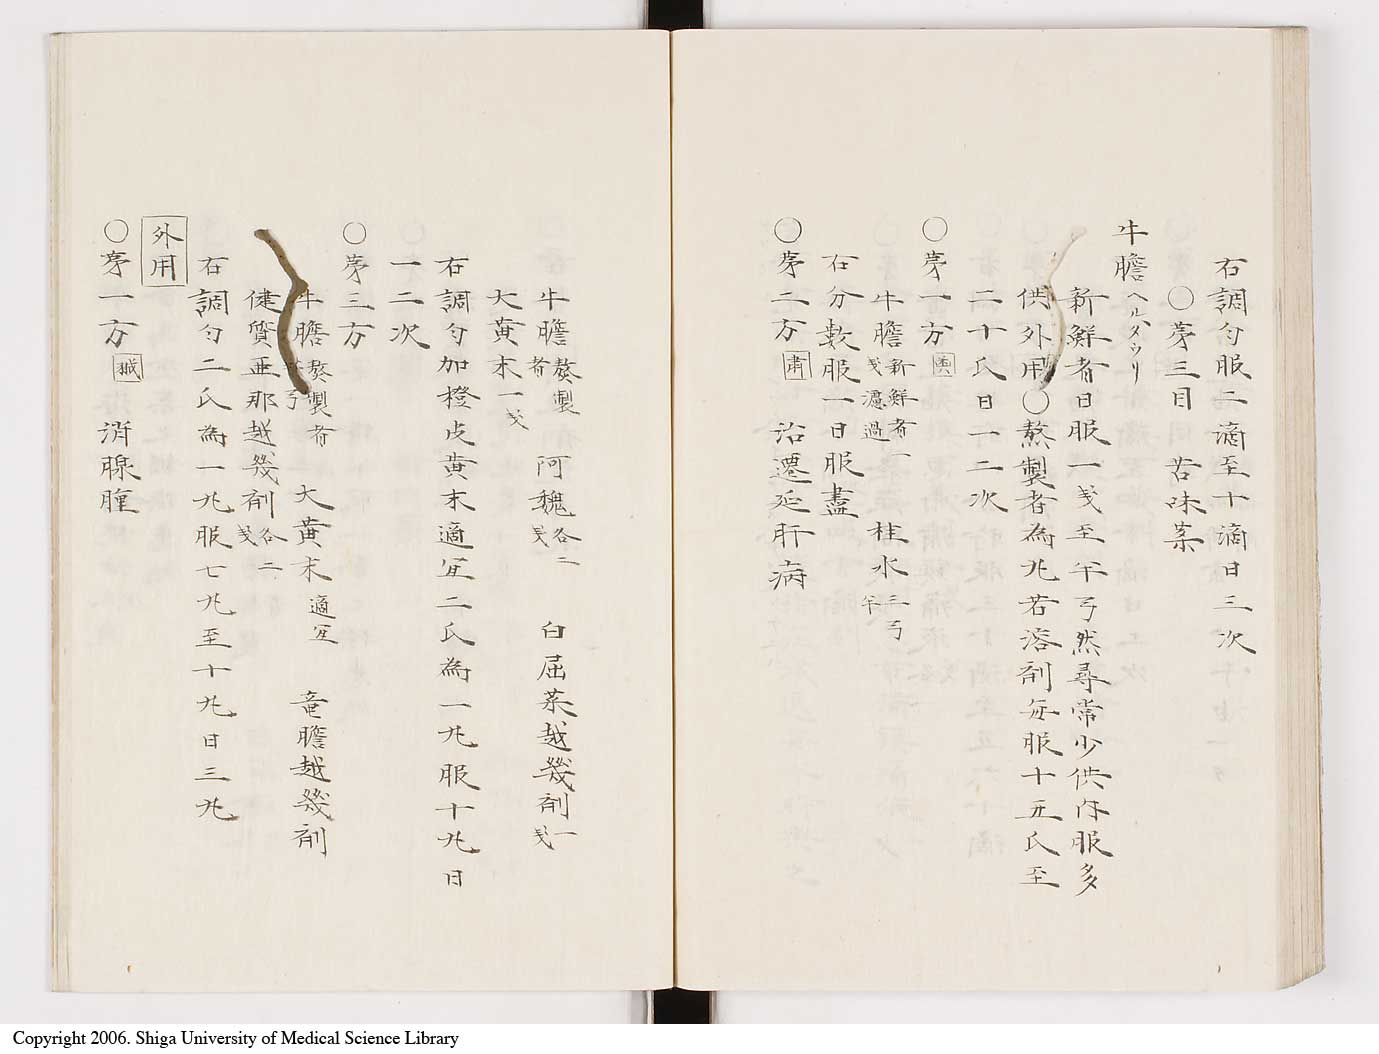 右調匀服二滴至十滴日三次
○第三目 苦味薬
牛膽 ヘルス ウリ
新鮮者日服一戔至半弓然尋常少供内服多
供外用○熬製者為丸若溶剤毎服十五氏至
二十氏日一二次
○第一方
牛膽 新鮮者一戔濾過 桂水 三弓半
右分數服一日服盡
○第二方 肅 治遷延肝病
牛膽 熬製者 阿魏 各二戔 白屈菜越幾剤 一戔
大黄末 一戔
右調匀加橙皮黄末適宜二氏為一丸服十丸日
一二次
○第三方
牛膽 熬製者 弓 大黄末 適宜 竜膽越幾剤
健質亜那越幾剤 各二戔
右調匀二氏為一丸服七丸至十丸日三丸
外用
○第一方 消腺腫
Copyright 2006. Shiga University of Medical Science Library